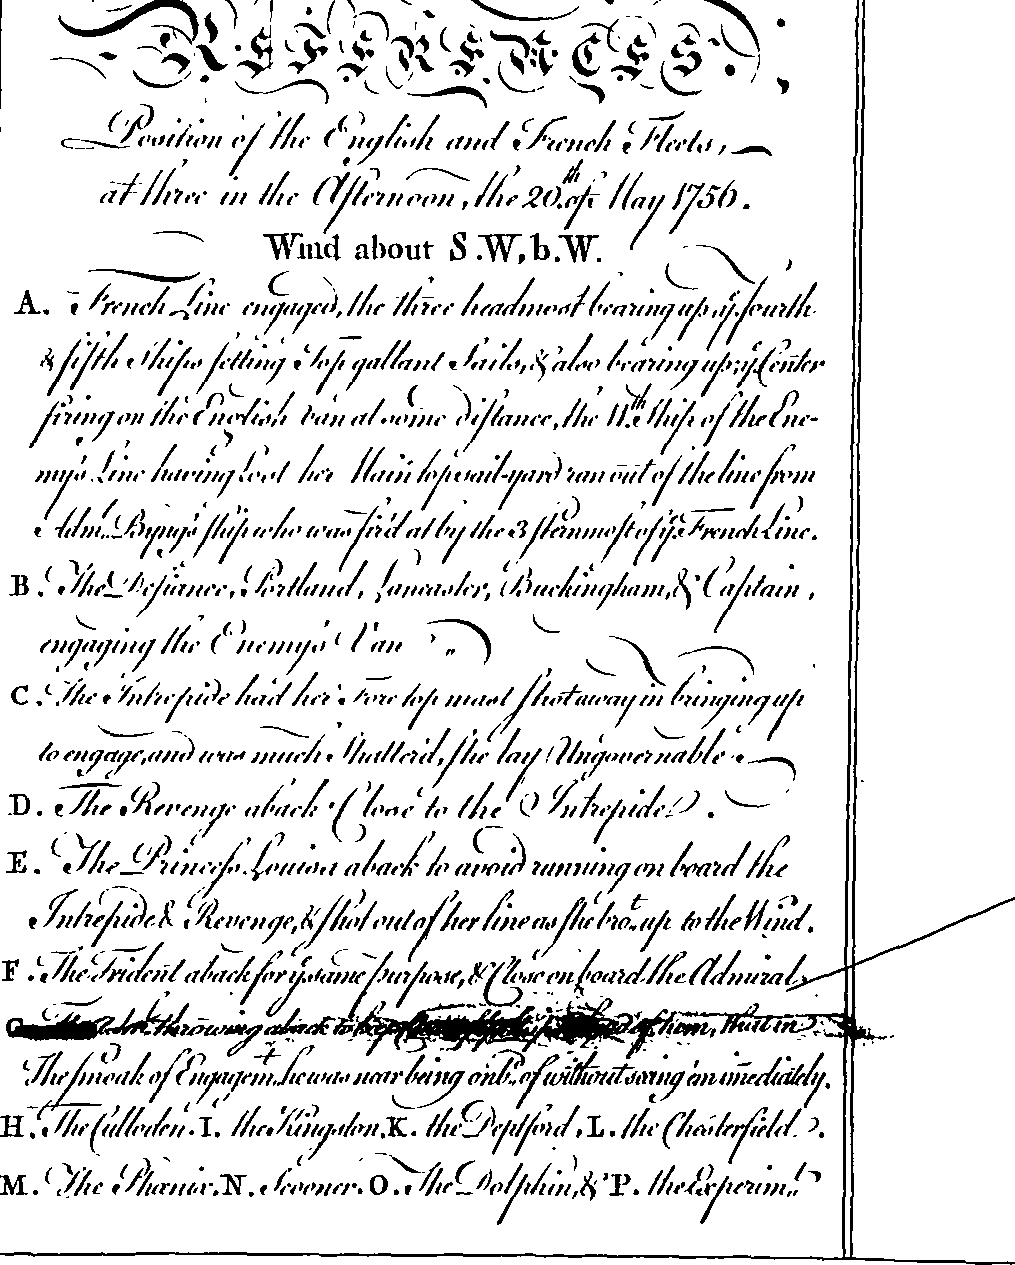 REFERENCES.
Position of the English and French Fleets,
at three in the Afternoon, the 20.th of May 1756.
Wind about S.W. b. W.
A. French Line engaged, the three headmost bearing up, ye. fourth
& fifth Ships setting Top gallant Sails, & also bearing up; ye Center
firing on the English Van at some distance, the 11.th Ship of the Ene-
my's Line having lost her Main top sail-yard ran out of the line from
Adm.l Byng's ship who was fir'd at by the 3 sternmost of ye. French Line.
B. The Defiance, Portland, Lancaster, Buckingham, & Captain,
engaging the Enemy's Van
C. The Intrepide had her Fore top mast shot away in bringing up
to engage, and was much Shatter'd, she lay Ungovernable.
D. The Revenge aback Close to the Intrepide.
E. The Princess Louisa aback to avoid running on board the
Intrepide & Revenge, & shot out of her line as she bro.t up to the Wind.
F. The Trident aback for ye same purpose, & Close on board the Admiral,
G. The throwing aback to keep of them, that in
The smoak of Engagem.t he was near being onb.d of without seeing 'em immediately.
H. The Culloden. I. the Kingston. K. the Deptford. L. the Chesterfield.
M. The Phœnix. N. Scooner. O. The Dolphin, & P. the Experim.t